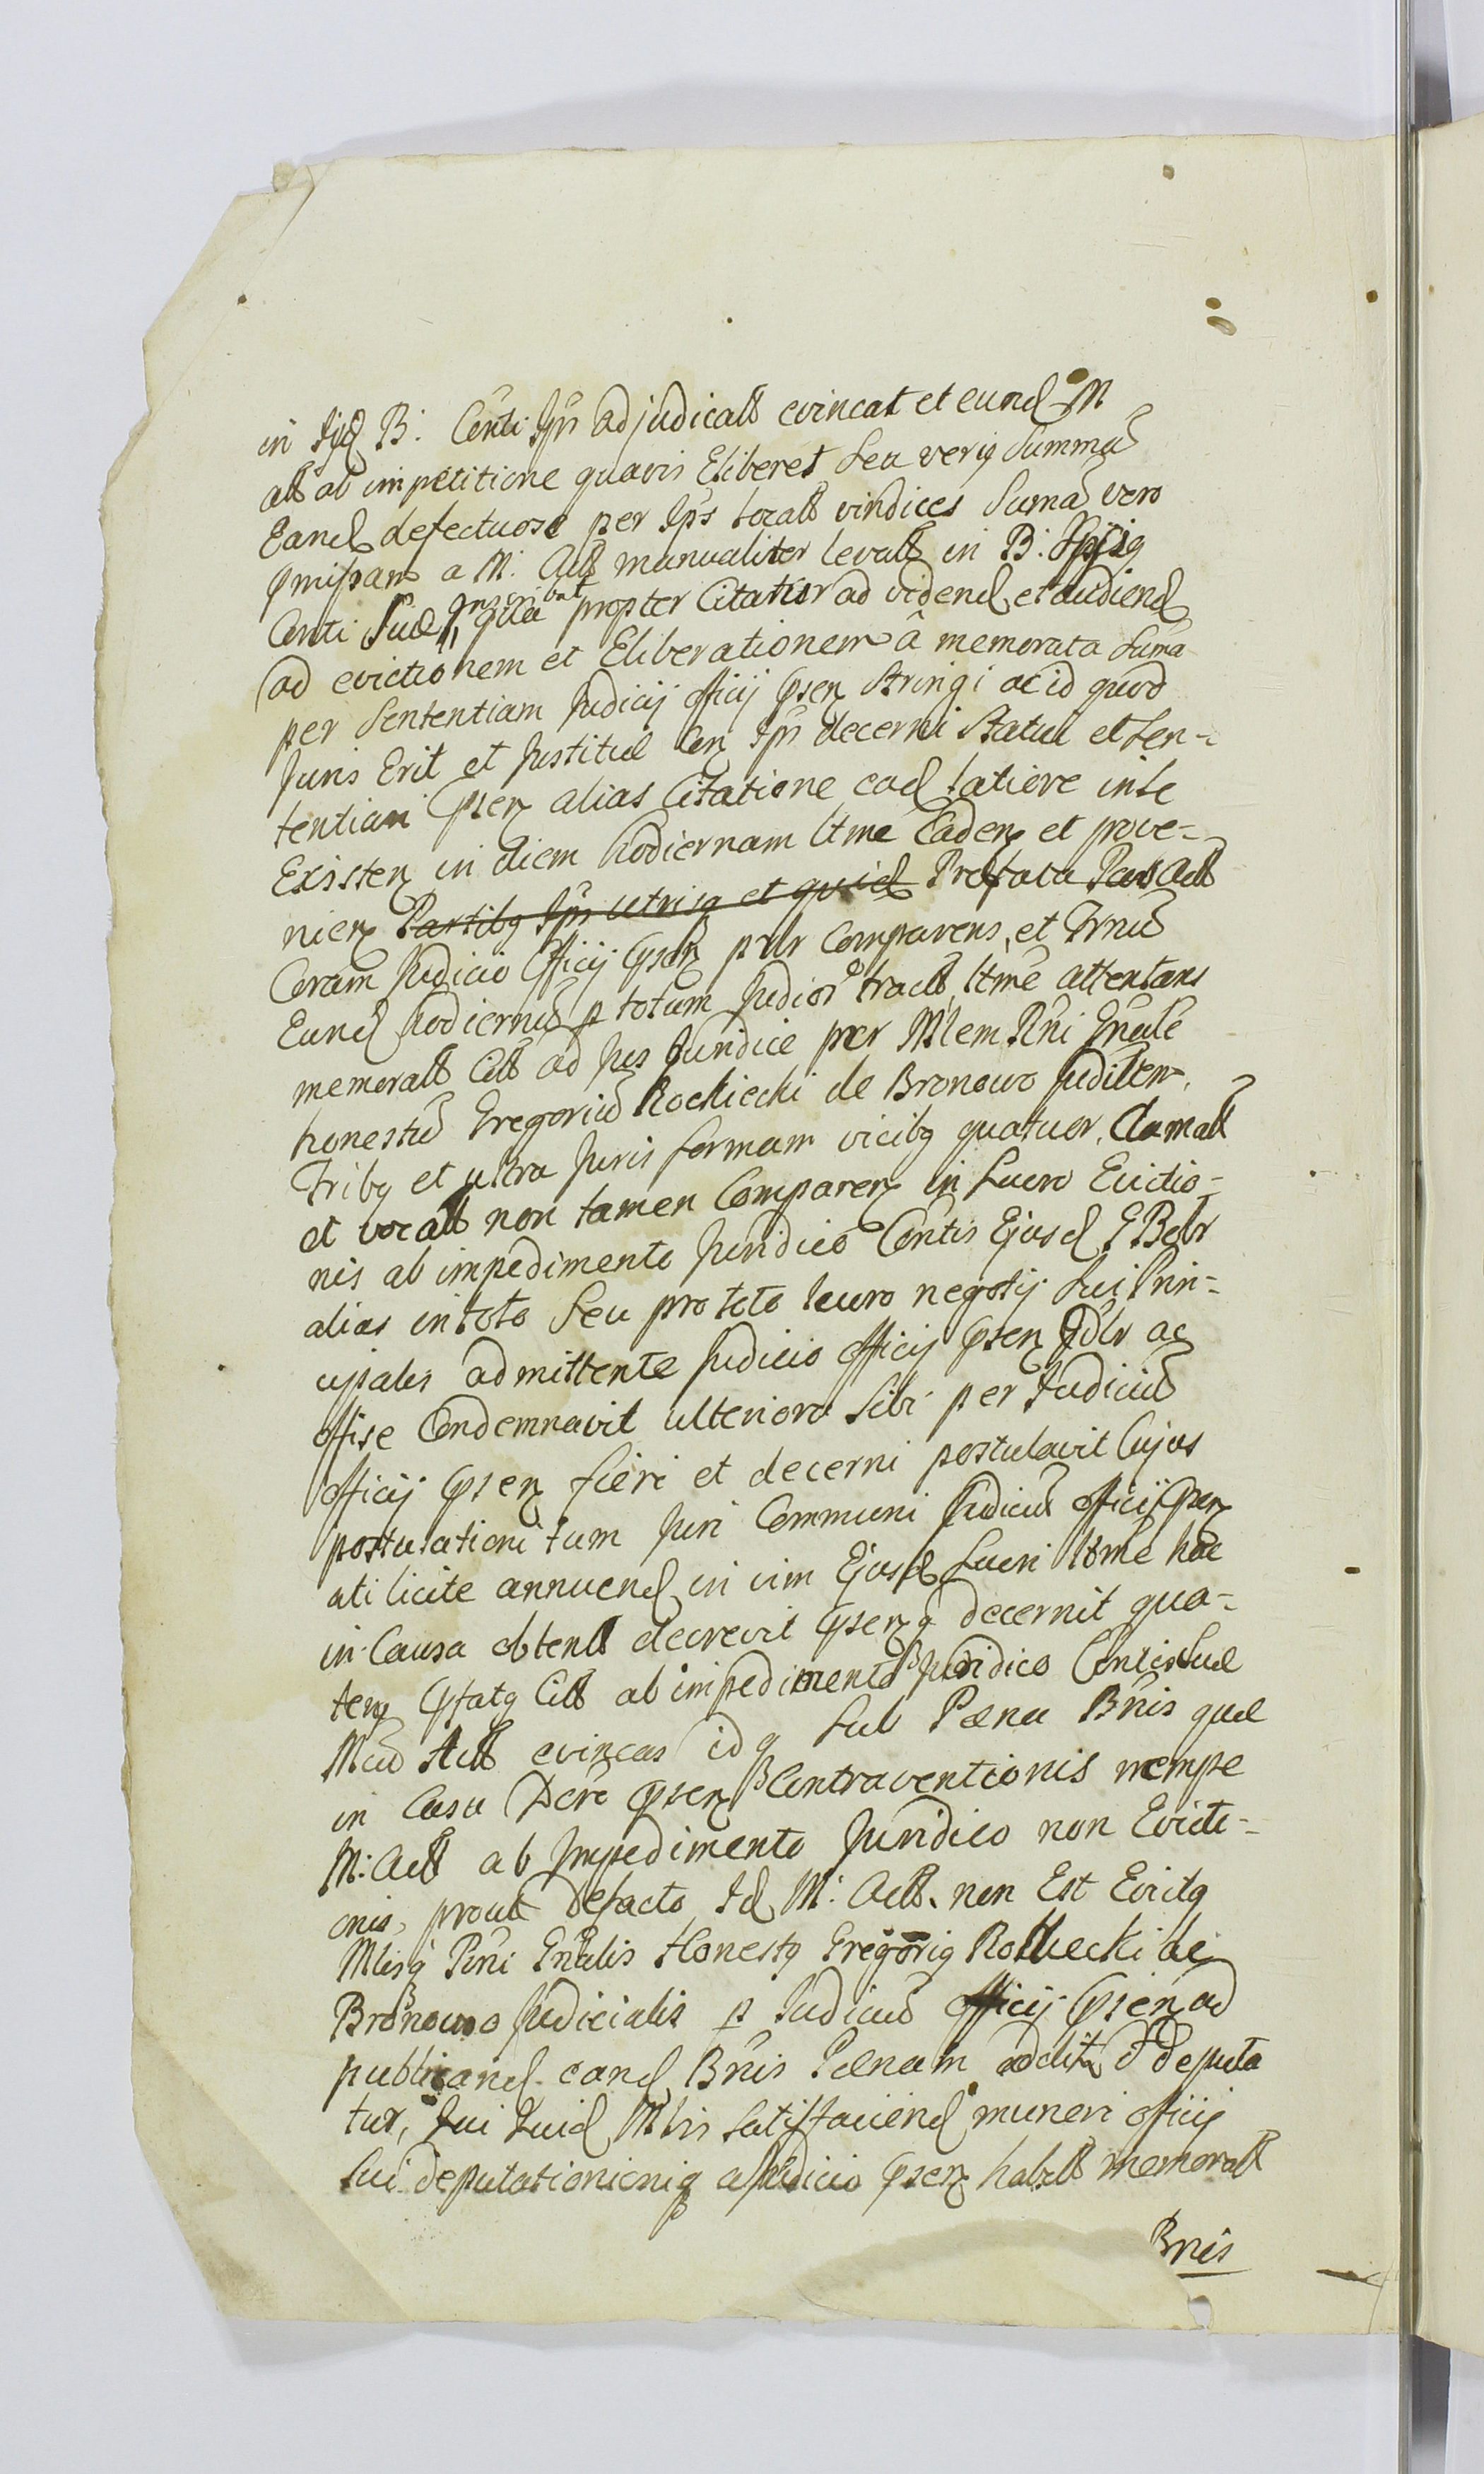 in B: Conti Ips adjudicatt evincat et eund M
att ab impetitione quavis Eliberet seu veriq Summā
Eand defectuose per Ips locatt vindices Sumā vero
pmissam a M. Actt manualiter levatt in B: Ipsiq
Conti Suæ inscribat qua propter Citatur ad vidend et audiend
ad evictionem et Eliberationem â memorata Suma
per Sententiam Judicij Officij psen stringi ac id quod
Juris Erit et Justitiæ Cen Ips decerni Statui et Sen-
tentiari psen alias Citatione ead latiore in se
Existen in diem hodiernam ltme Caden et prove-
nien Partibq Ips utrisq et quid Præfata Pars Actt
Coram Judicio Officij psen pnlr Comparens, et Trnū
Eund hodiernū p totum Judior tractt, ltme attentans
memoratt Citt ad Jus Juridice per Mlem Rni Gnale
honestū Gregoriū Rockiecki de Bronowo Judilem
Tribq et ultra Juris formam vicibq quatuor, Clamatt
et vocatt non tamen Comparen in Lucro Evictio-
nis ab impedimento Juridico Contis Ejusd
alias in toto Seu pro toto lucro negotij Sui Prin-
cipalis admittente Judicio Officij psen Jdlr ac
offise Condemnavit ulteriora Sibi per Judiciū
Officij psen fieri et decerni postulavit Cujus
postulationi tum Juri Communi Judiciū Officij psen
uti licite annuend in vim Ejusd Lucri ltme hāc
in Causa obtentt decrevit psenq decernit qua-
ten pfatq Citt ab impedimento Juridico Contis Suæ
Mcū Actt evincas idq Sub Pæna Bnis quæ
in Casu Dere psen Contraventionis nempe
M: Actt ab Impedimento Juridico non Evicti-
onis, prout defacto Id M: Actt. non Est Evictq
Mlisq Rni Gnalis Honestq Gregoriq Rokiecki de
Bronowo Judicialis p Judiciū Officij psen ad
publicand eand Bnis Pænam additr & deputa
tur, Qui Quid Mlis Satisfaciend muneri Officij
Sui deputationiniq a Judicio psen habitt memoratt
Bnis